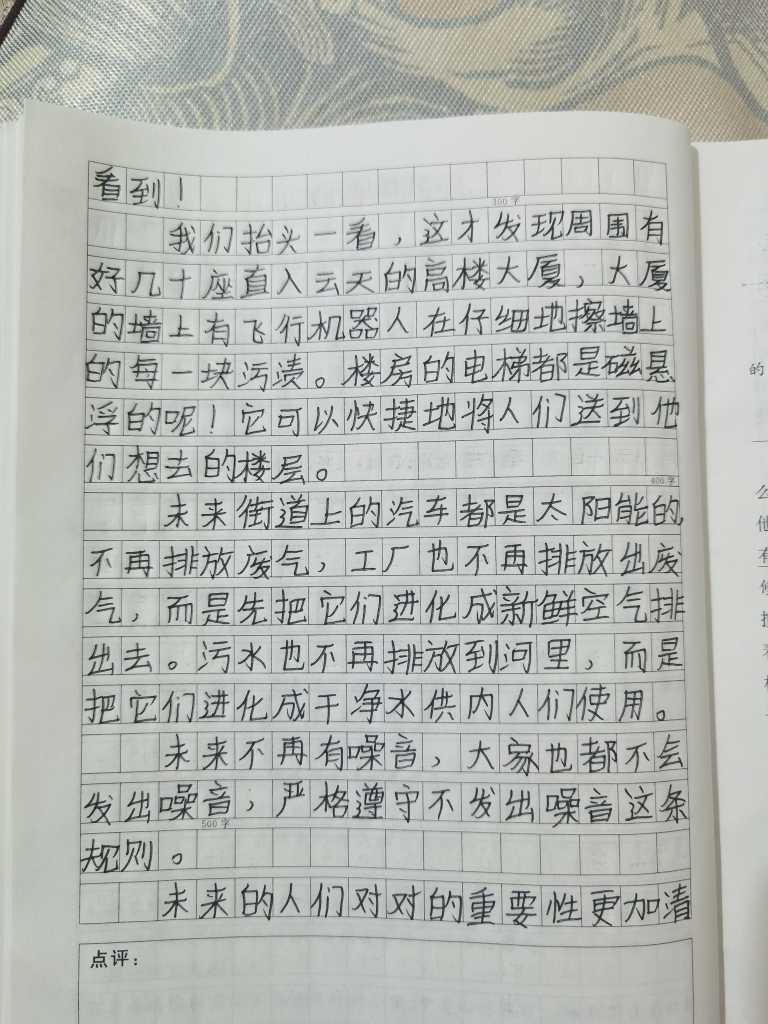 看到！
300字
我们抬头一看，这才发现周围有
好几十座直入云天的高楼大厦，大厦
的墙上有飞行机器人在仔细地擦墙上
的每一块污渍。楼房的电梯都是磁悬
浮的呢！它可以快捷地将人们送到他
们想去的楼层。
400字
未来街道上的汽车都是太阳能的，
不再排放废气，工厂也不再排放出废
气，而是先把它们进化成新鲜空气排
出去。污水也不再排放到河里，而是
把它们进化成干净水供内人们使用。
未来不再有噪音，大家也都不会
发出噪音，严格遵守不发出噪音这条
500字
规则。
未来的人们对对的重要性更加清
点评：
的
么
他
有